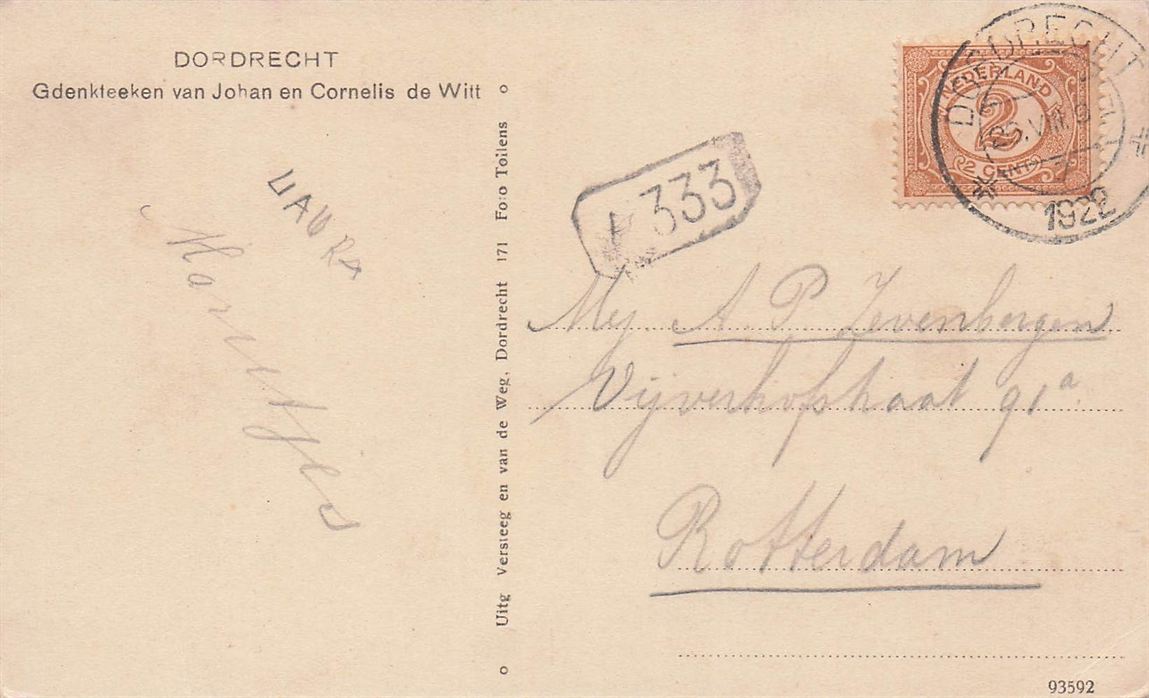 DORDRECHT
Gdenkteeken van Johan en Cornelis de Witt
LAURA
Uitg Versteeg en van de Weg, Dordrecht 171 Foto Tollens
333
DORDRECHT
1922
NEDERLAND
2
2 CENT 2
Mej A. P. Zevenbergen
Vijverhofstraat 91a
Rotterdam
93592